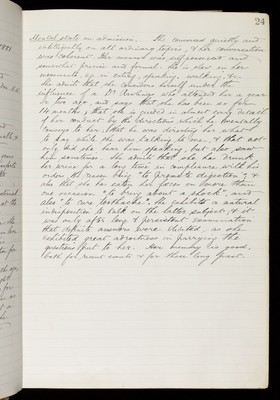 24
Mental state on admission. She conversed quietly and
intelligently on all ordinary topics, & her conversation
was coherent. Her manner was self-possessed and
somewhat precise and formal. She is slow in her
movements, e.g. in eating, speaking, walking, &c.
She admits that she considers herself under the
influence of a Dr who attended her a year
or two ago, and says that she has been so for
14 months & that she is guided in almost every detail
of her conduct by the directions which he mentally
conveys to her; that he was directing her what
to say while she was talking to me, & that not
only did she hear him speaking but also saw
him sometimes. She admits that she has drunk
her urine for a long time in compliance with his
orders, the reason being "to promote digestion", &
also that she has eaten her fæces on more than
one occasion "to bring about a shock", and
also "to cure toothache". She exhibits a natural
indisposition to talk on the latter subject, & it
was only after long & persistent examination
that definite answers were elicited, as she
exhibited great adroitness in parrying the
questions put to her. Her memory is good,
both for recent events & for those long past.